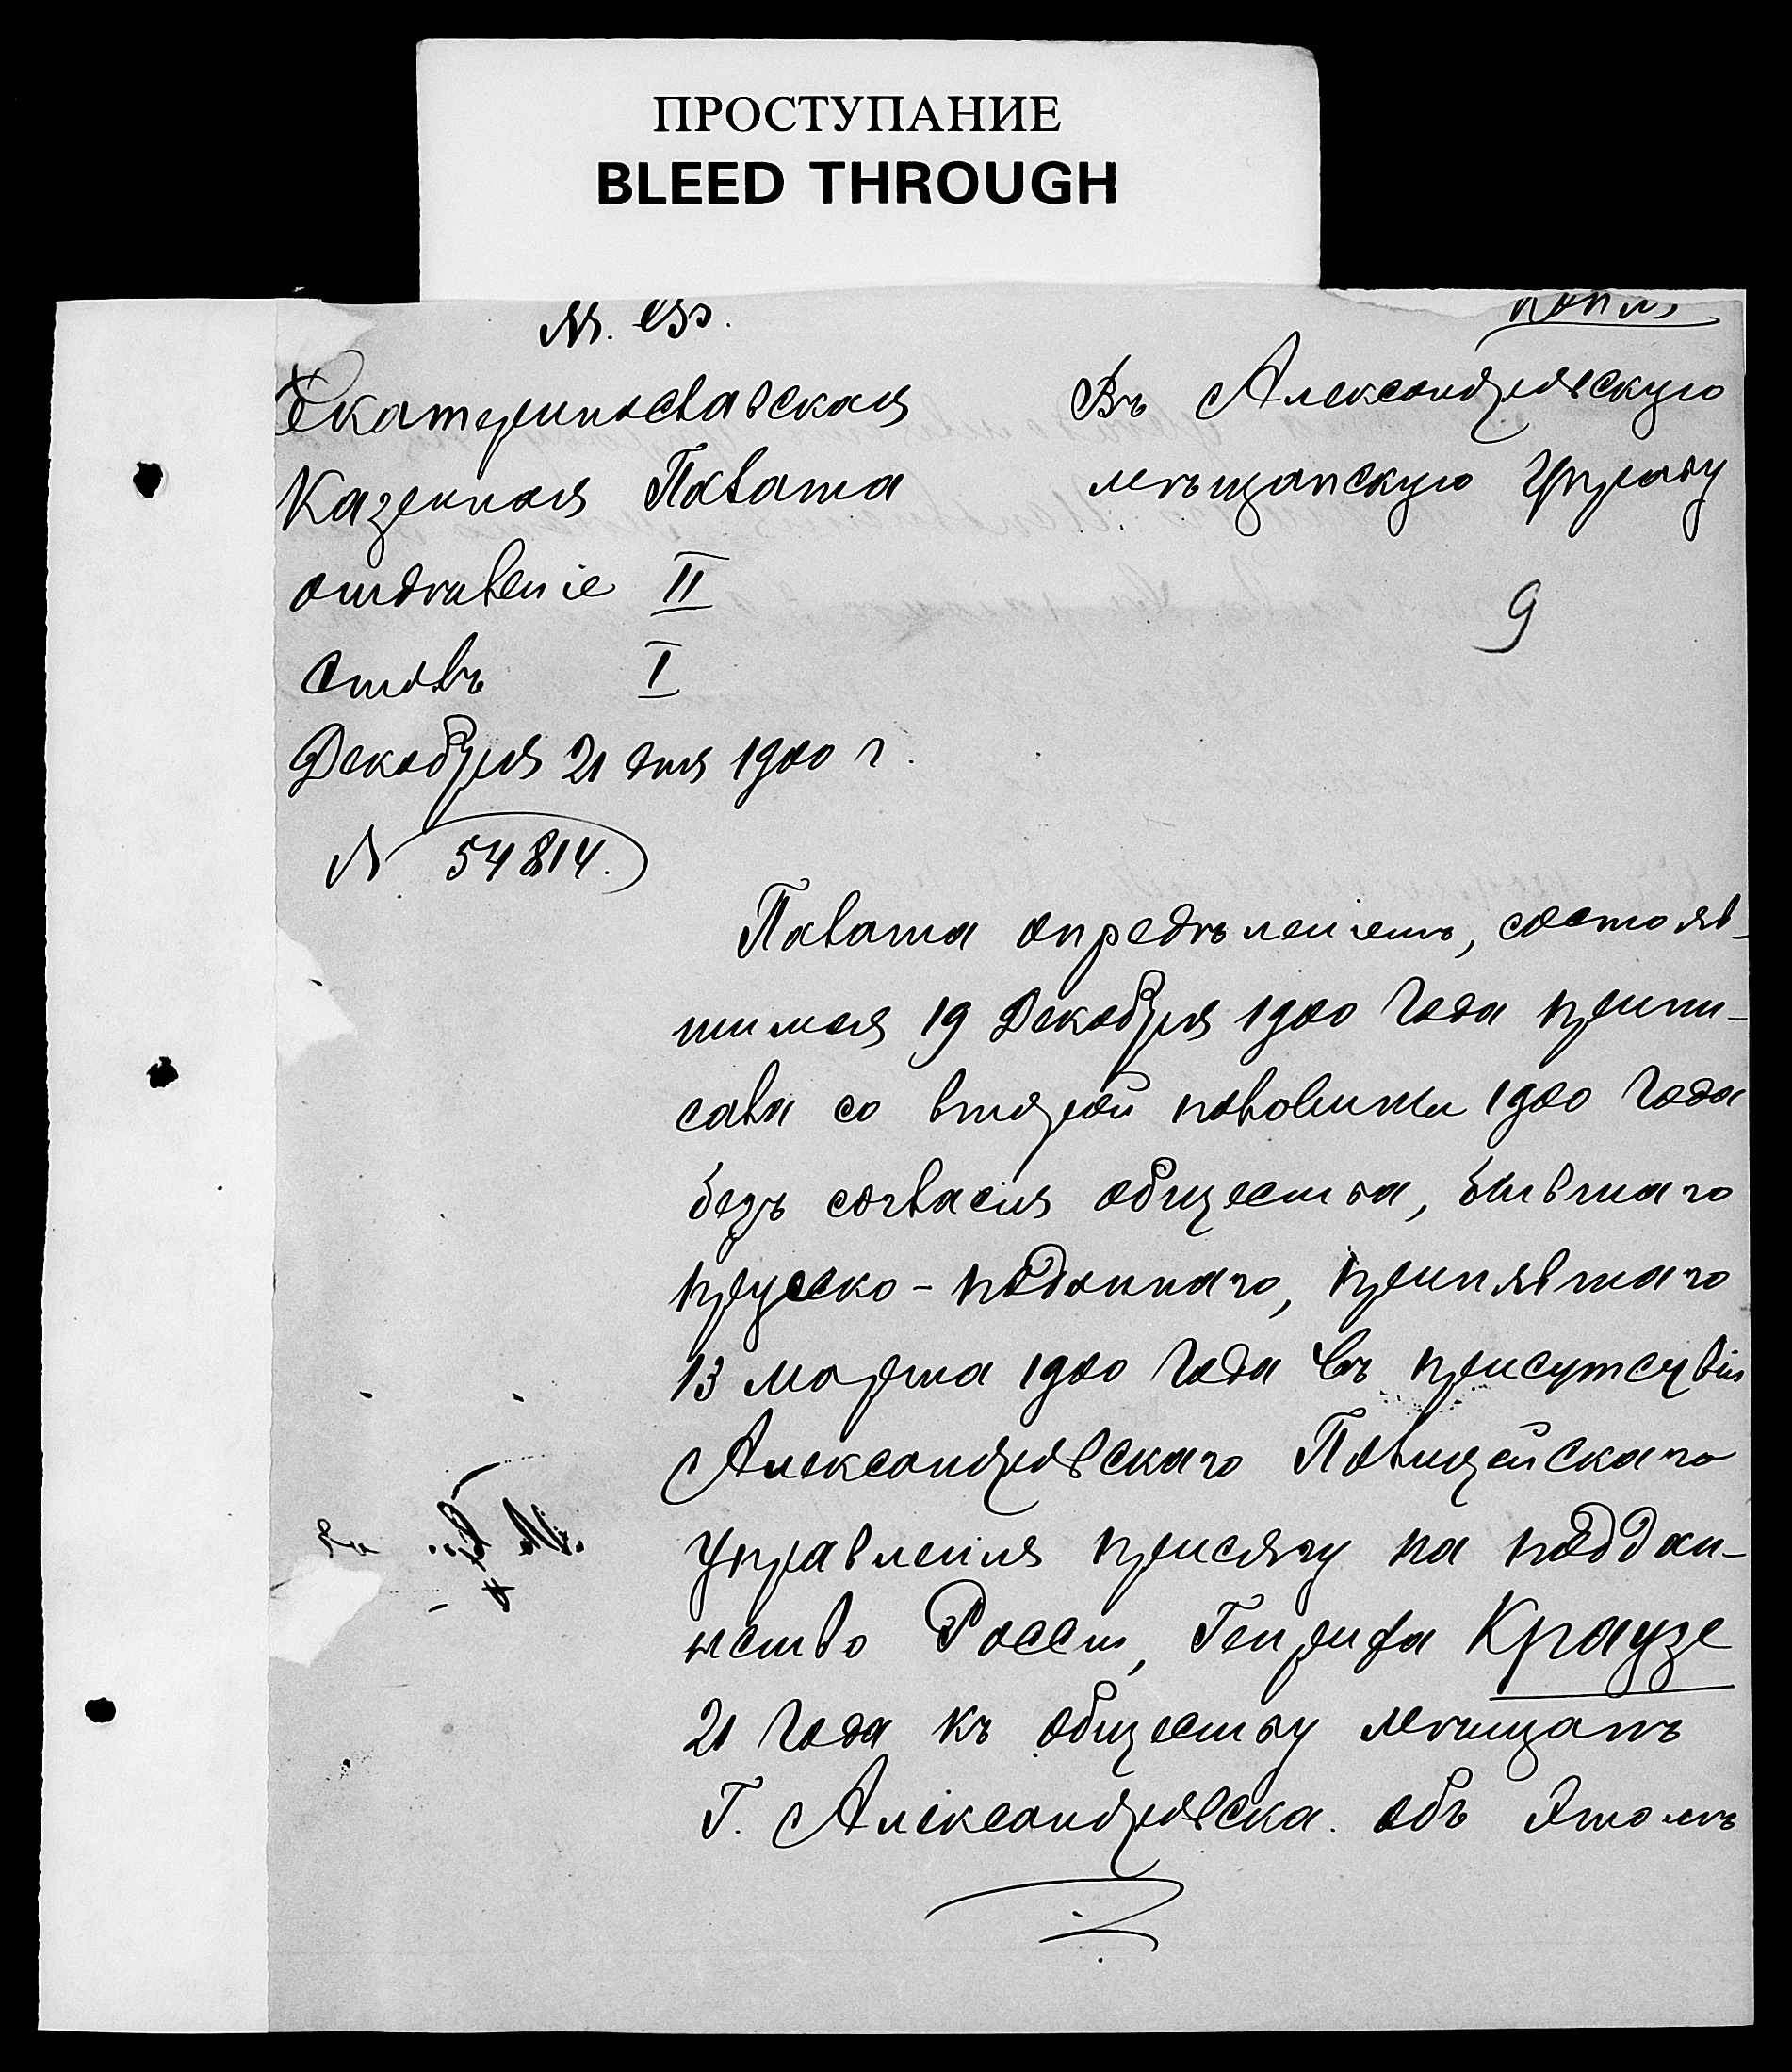 ПРОСТУПАНИЕ
BLEED THROUGH
копія
М. Ф.
Екатеринославская
Казенная Палата
отдѣленіе II
столъ I
Декабря 21 дня 1900 г.
№ 54814.
Въ Александровскую
мѣщанскую Управу
9
Палата опредѣленіемъ, состояв-
шимся 19 Декабря 1900 года припи-
сала со второй половины 1900 года
безъ согласія общества, бывшаго
прусско-подданнаго, принявшаго
13 марта 1900 года въ присутствіи
Александровскаго Полицейскаго
Управленія присягу на поддан-
нство Россіи, Генриха Краузе
21 года къ обществу мѣщанъ
Г. Александровска. объ этомъ